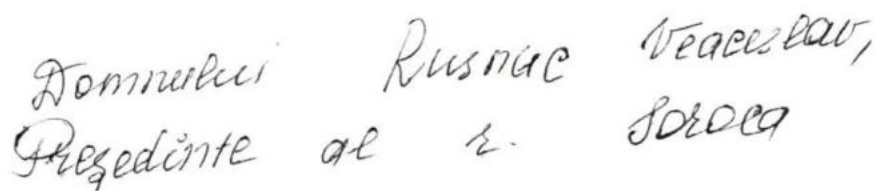 Domnului Rusnac Veaceslav,
Președinte al r. Soroca